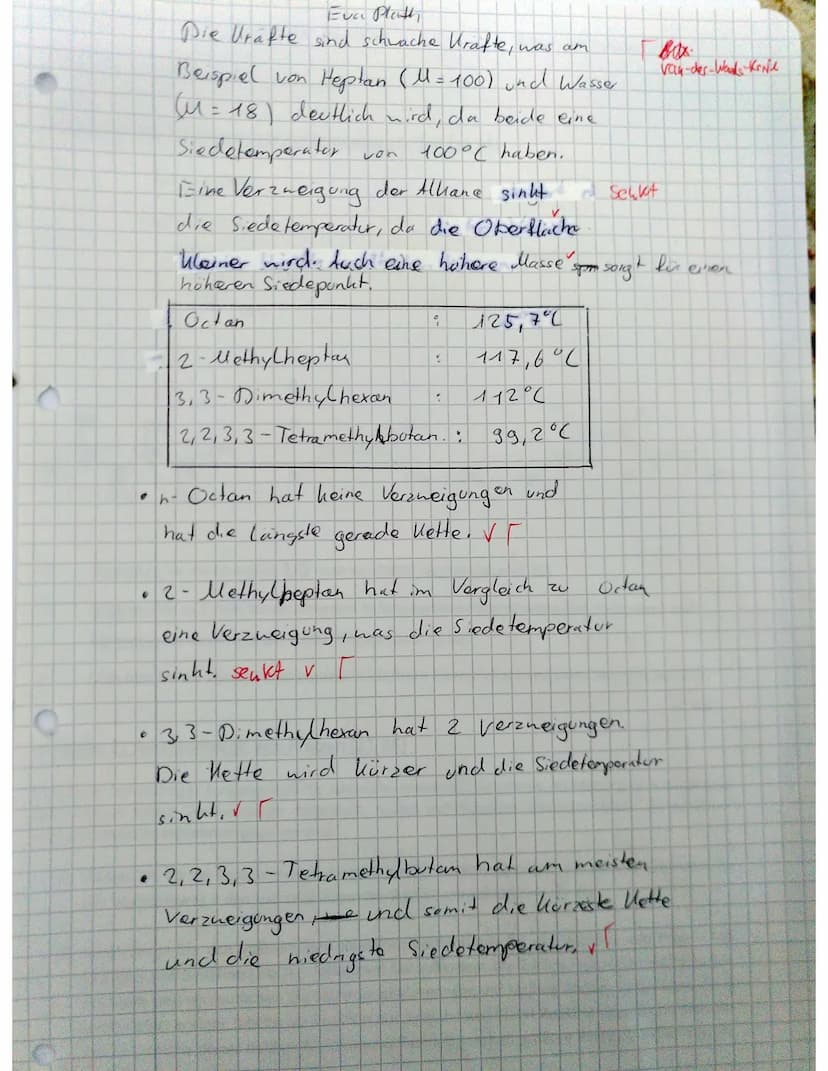 Eva Plath,
Die Kräfte sind schwache Kräfte, was am ┌
Van-der-Waals-Kräfte
Beispiel von Heptan (M=100) und Wasser
(M=18) deutlich wird, da beide eine
Siedetemperatur von 100°C haben.
Eine Verzweigung der Alkane sinkt senkt
die Siedetemperatur, da die Oberfläche ✓
kleiner wird. Auch eine höhere Masse ✓ sorgt für einen
höheren Siedepunkt.
Octan : 125,7°C
2-Methylheptan : 117,6°C
3,3-Dimethylhexan : 112°C
2,2,3,3-Tetramethylbutan. : 99,2°C
• n-Octan hat keine Verzweigungen und
hat die längste gerade Kette. ✓ ┌
• 2-Methylheptan hat im Vergleich zu Octan
eine Verzweigung, was die Siedetemperatur
sinkt. senkt ✓ ┌
• 3,3-Dimethylhexan hat 2 Verzweigungen.
Die Kette wird kürzer und die Siedetemperatur
sinkt. ✓ ┌
• 2,2,3,3-Tetramethylbutan hat am meisten
Verzweigungen, und somit die kürzeste Kette
und die niedrigste Siedetemperatur. ✓ ┌